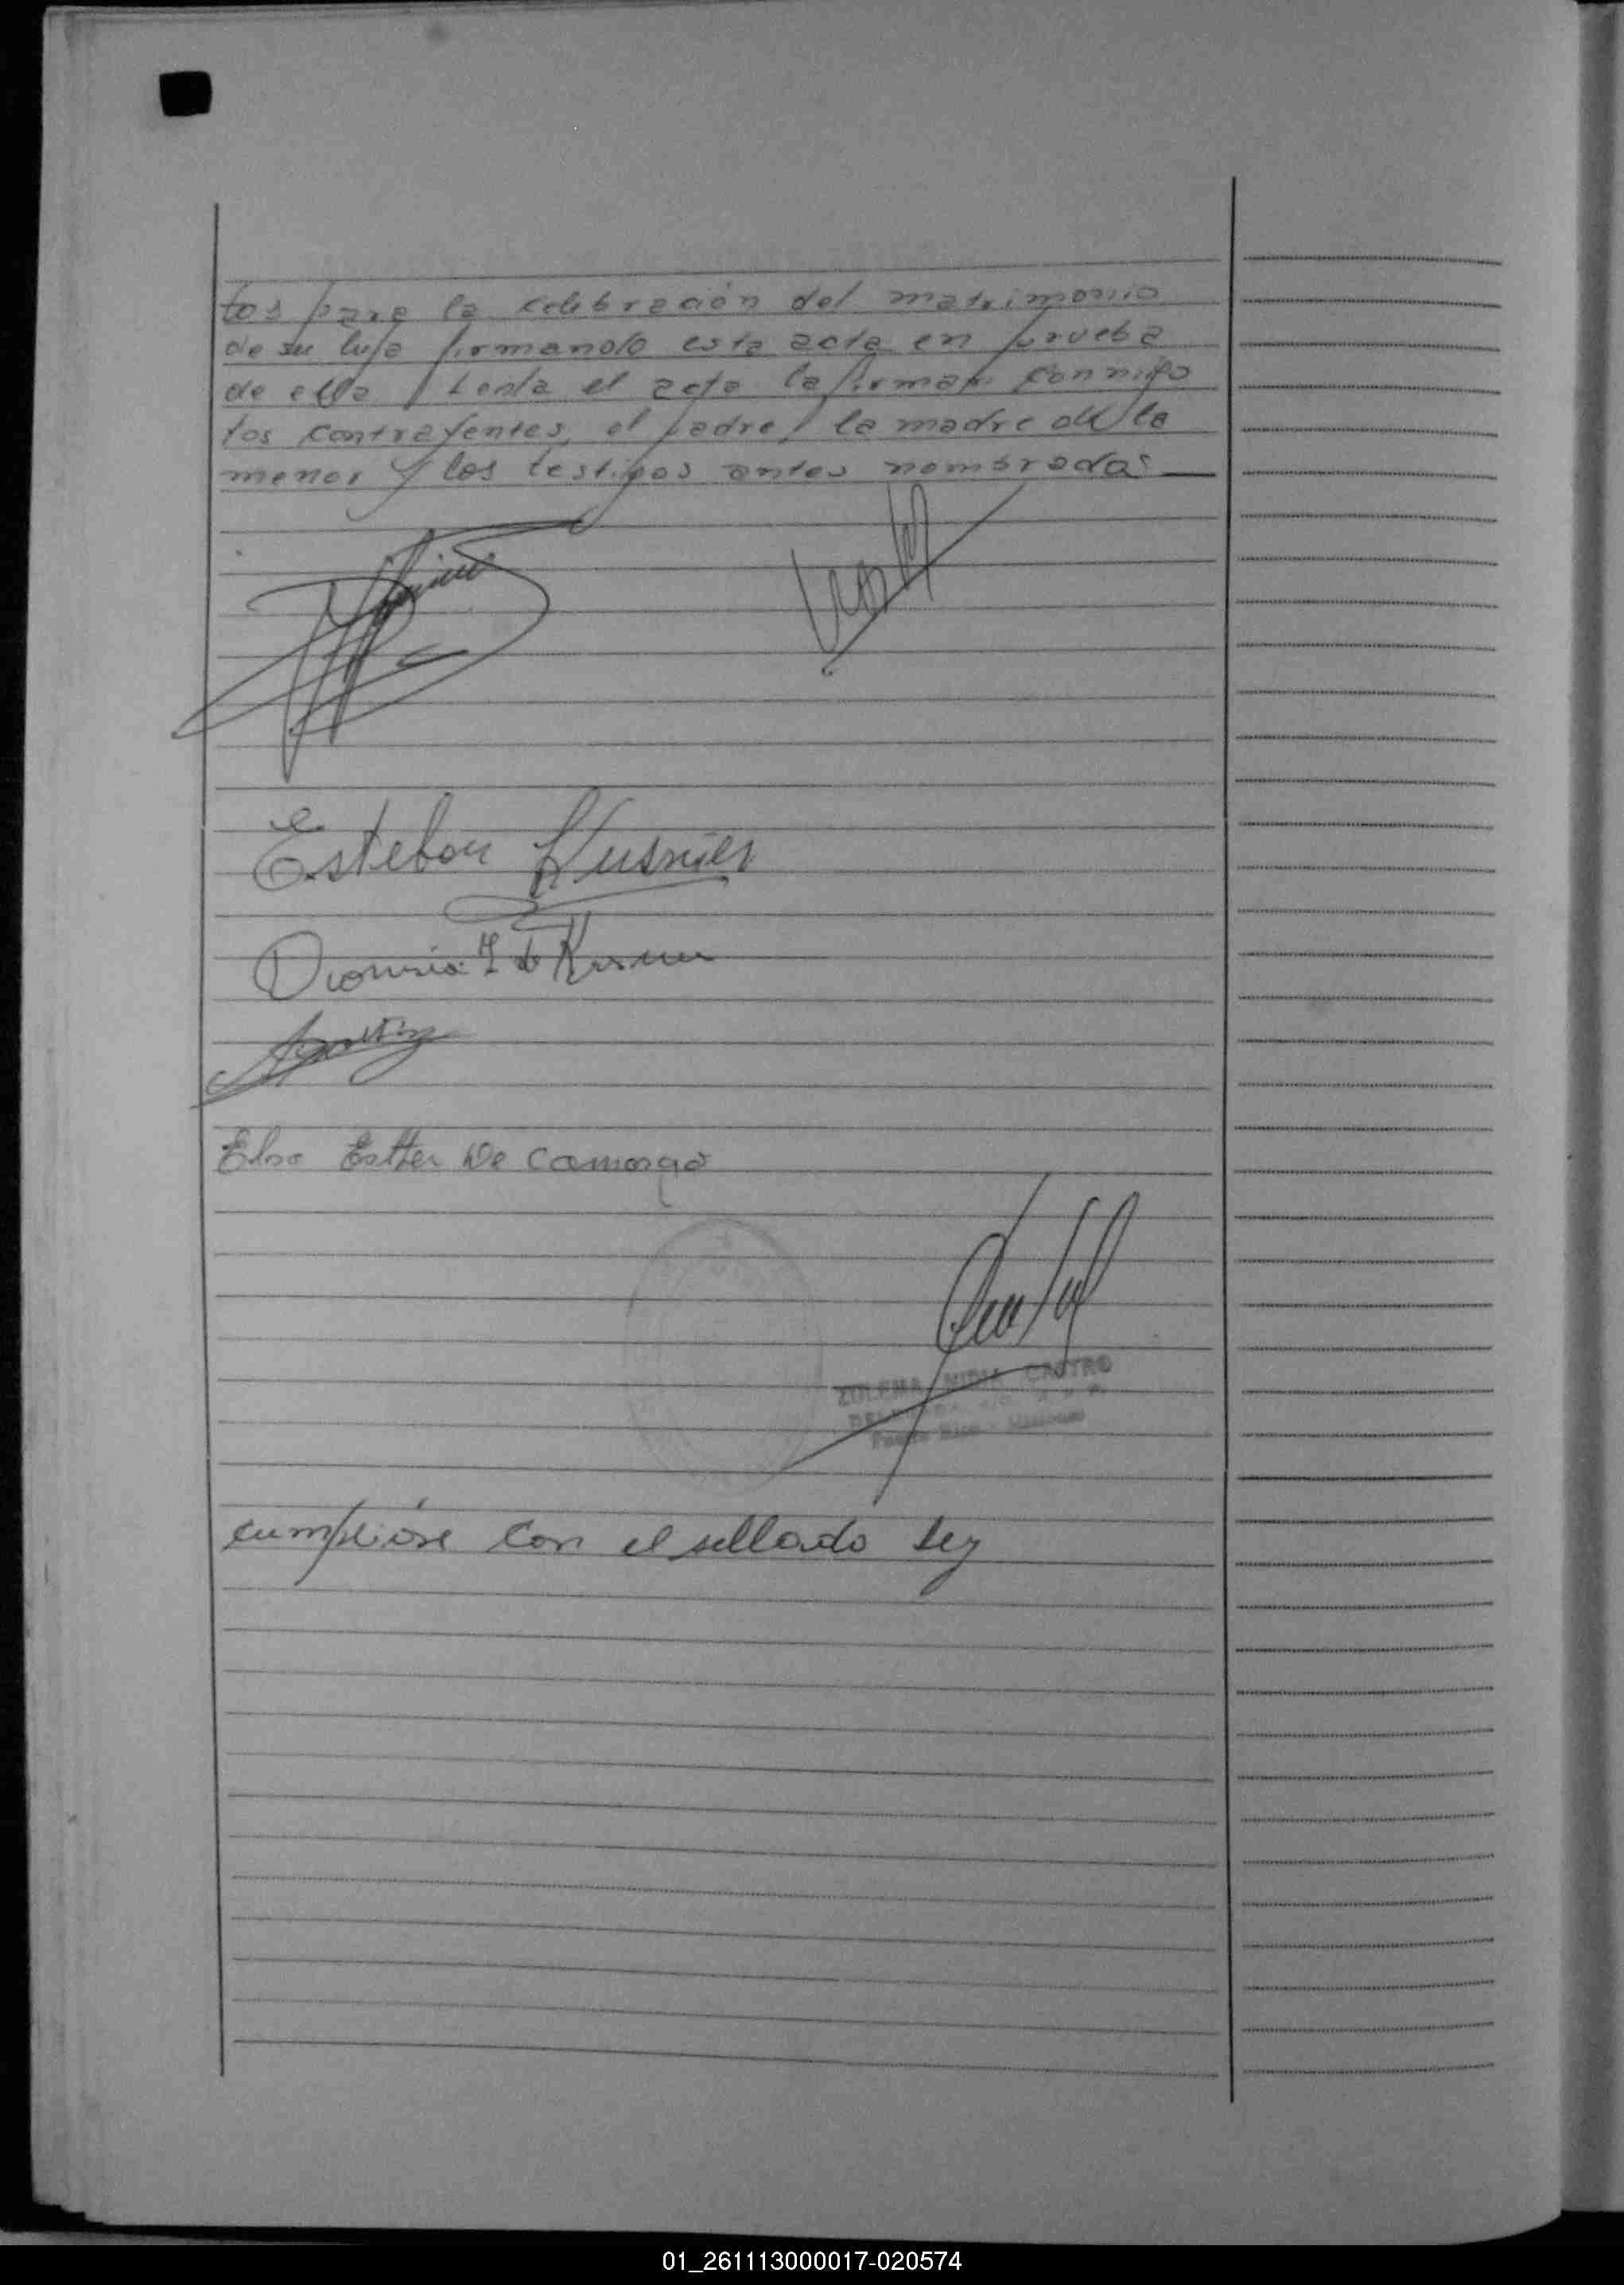 tos para la celebración del matrimonio
de su hija firmando esta acta en prueba
de ello. Leida el acta la firman conmigo
los contrayentes, el padre, la madre de la
menor y los testigos antes nombrados
Esteban Kusnier
Dionisia de Kusnier
Elsa Esther De Camargo
ZULEMA NIDIA CASTRO
Puerto Rico - Misiones
cumplióse con el sellado Ley
01_261113000017-020574